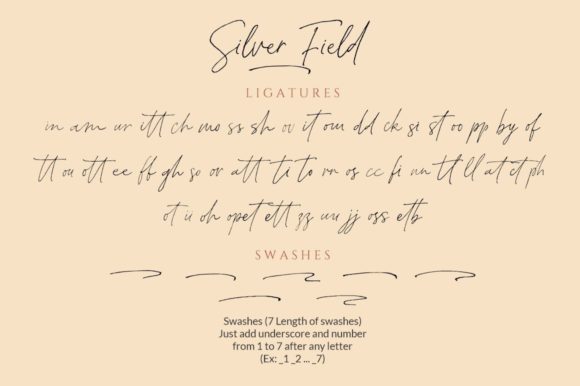 Silver Field
LIGATURES
in am ur itt ch mo ss sh ov it om dd ck si st oo pp by of
tt ou ott ee ff gh so or att ti to rn os cc fi nn tl ll at ct ph
ot ii oh opet ett zz uu jj oss etb
SWASHES
Swashes (7 Length of swashes)
Just add underscore and number
from 1 to 7 after any letter
(Ex: _1 _2 ... _7)